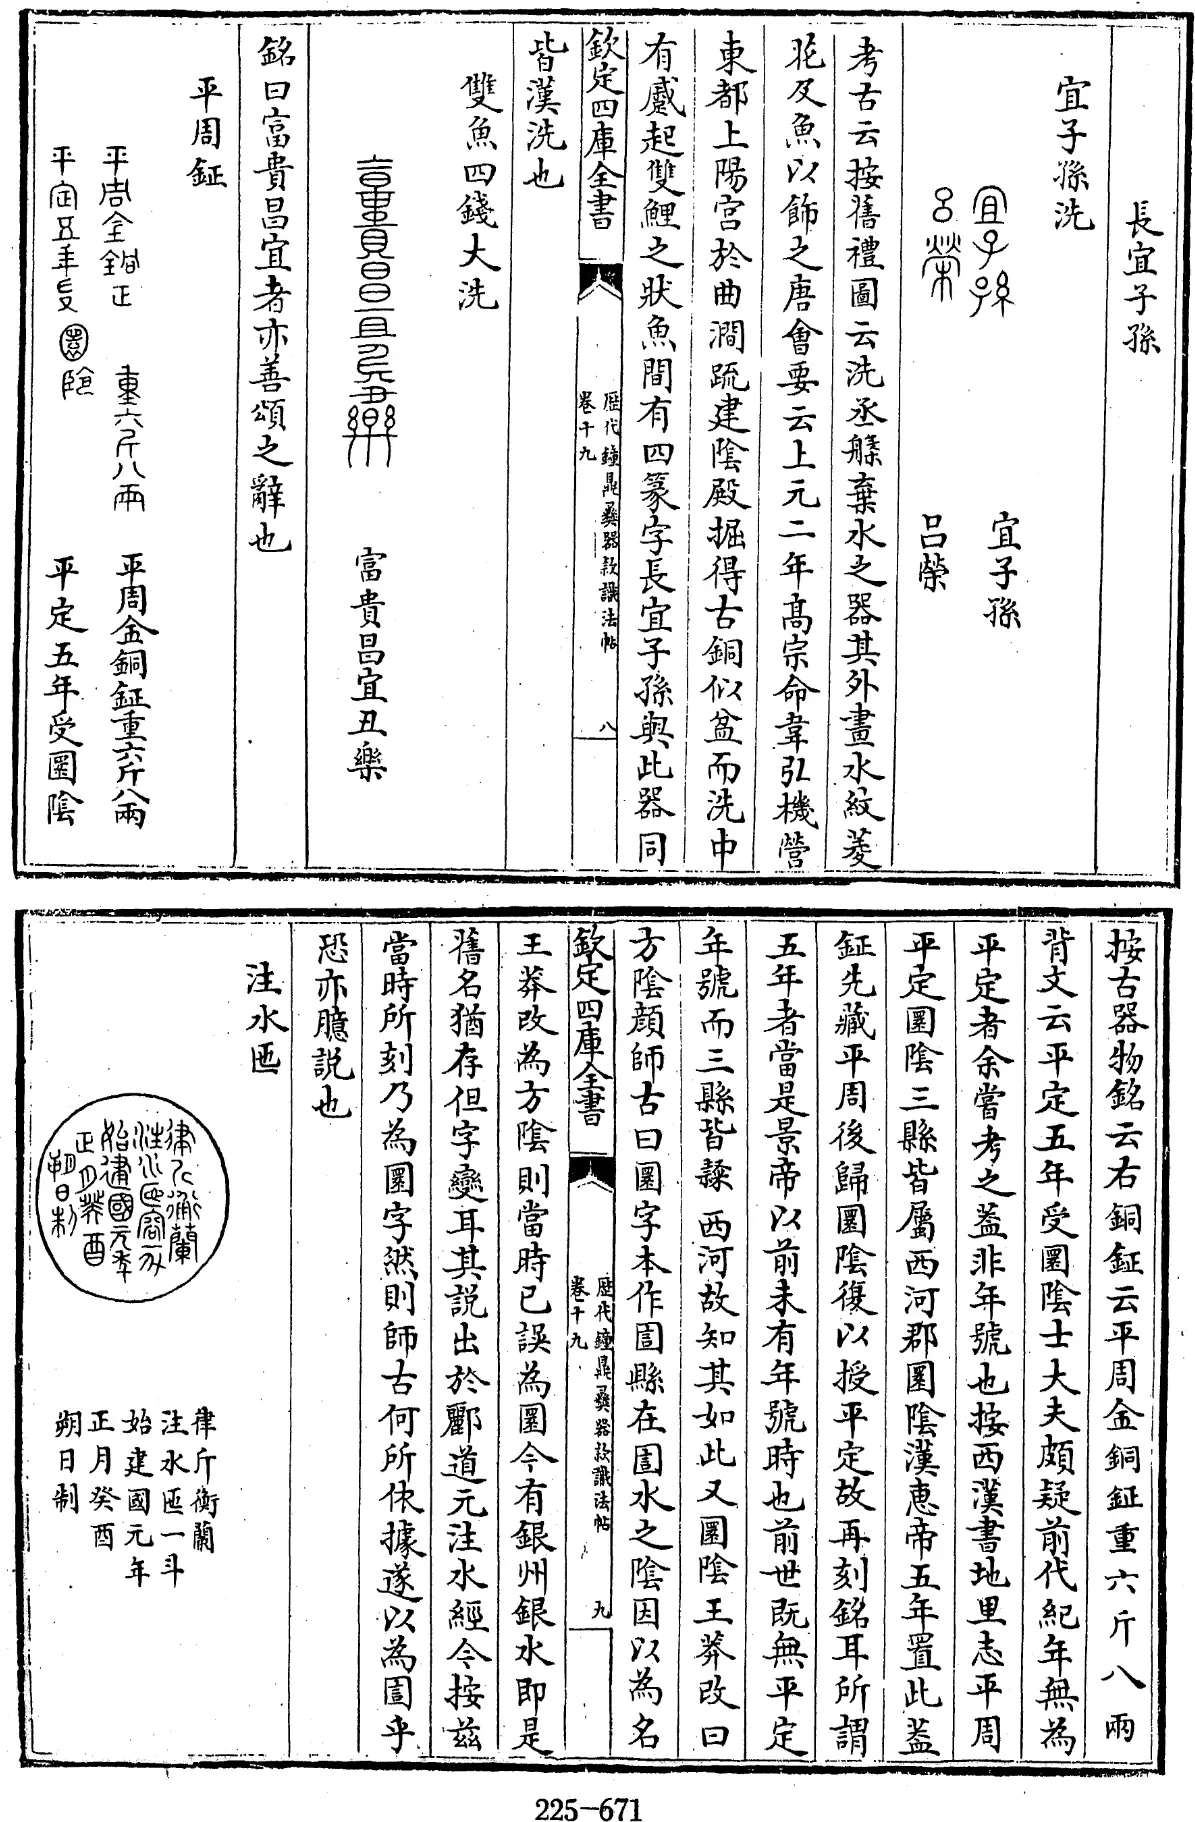 長宜子孫
宜子孫洗
宜子孫
呂榮
宜子孫
呂榮
考古云按舊禮圖云洗丞槃棄水之器其外畫水紋菱
花及魚以飾之唐會要云上元二年高宗命韋弘機營
東都上陽宫於曲澗疏建陰殿掘得古銅似盆而洗中
有蹙起雙鯉之狀魚間有四篆字長宜子孫與此器同
欽定四庫全書
歴代鐘鼎彝器款識法帖
卷十九
八
皆漢洗也
雙魚四錢大洗
富貴昌宜丑樂
銘曰富貴昌宜者亦善頌之辭也
平周鉦
平周金銅鉦重六斤八兩
平定五年受圜隂
平周金銅鉦重六斤八兩
平定五年受圜陰
按古器物銘云右銅鉦云平周金銅鉦重六斤八兩
背文云平定五年受圜陰士大夫頗疑前代紀年無為
平定者余嘗考之蓋非年號也按西漢書地里志平周
平定圜陰三縣皆屬西河郡圜陰漢惠帝五年置此蓋
鉦先藏平周後歸圜陰復以授平定故再刻銘耳所謂
五年者當是景帝以前未有年號時也前世既無平定
年號而三縣皆隸西河故知其如此又圜陰王莽改曰
方陰顔師古曰圜字本作圁縣在圁水之陰因以為名
欽定四庫全書
歴代鐘鼎彝器款識法帖
卷十九
九
王莽改為方陰則當時已誤為圜今有銀州銀水即是
舊名猶存但字變耳其説出於酈道元注水經今按兹
當時所刻乃為圜字然則師古何所依據遂以為圁乎
恐亦臆説也
注水匜
律斤衡蘭
注水匜一斗
始建國元年
正月癸酉
朔日制
225-671